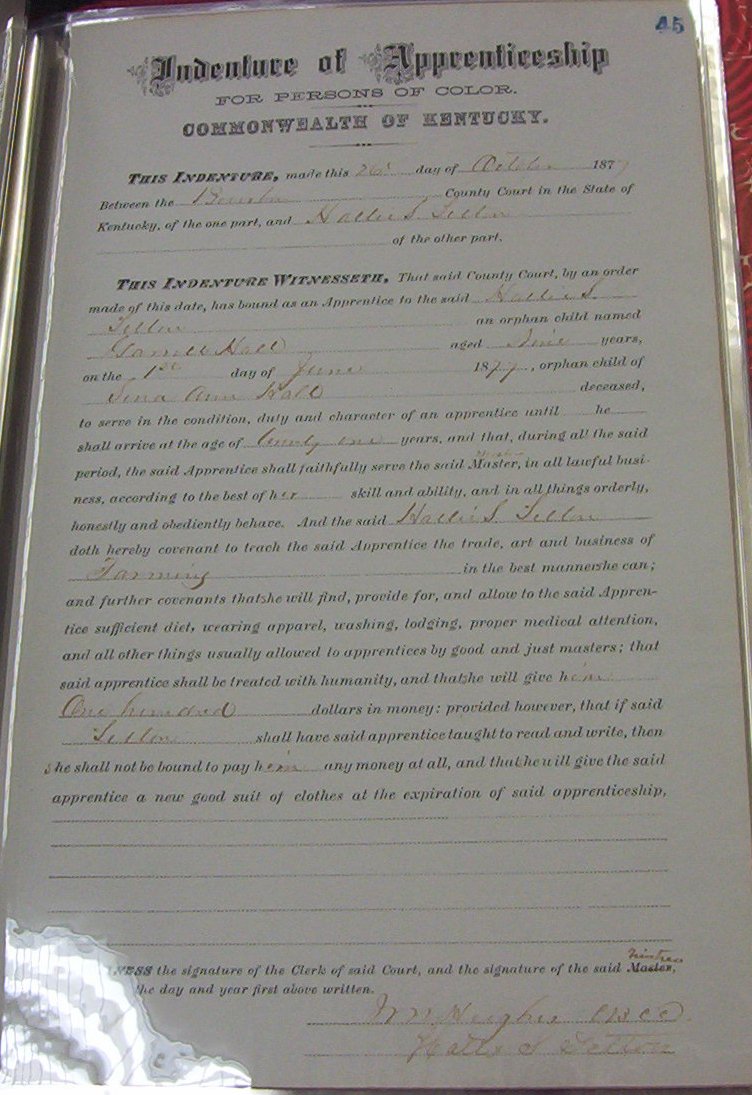 45
Indenture of Apprenticeship
FOR PERSONS OF COLOR.
COMMONWEALTH OF KENTUCKY.
THIS INDENTURE, made this 26 day of October 1877
Between the Bourbon County Court in the State of
Kentucky, of the one part, and Hallie S.
of the other part.
THIS INDENTURE WITNESSETH, That said County Court, by an order
made of this date, has bound as an Apprentice to the said Hallie S.
an orphan child named
Hall aged Nine years,
on the 1st day of June 1877, orphan child of
Ann Hall deceased,
to serve in the condition, duty and character of an apprentice until he
shall arrive at the age of twenty one years, and that, during all the said
period, the said Apprentice shall faithfully serve the said Master, in all lawful busi-
ness, according to the best of her skill and ability, and in all things orderly,
honestly and obediently behave. And the said Hallie S.
doth hereby covenant to teach the said Apprentice the trade, art and business of
Farming in the best manner she can;
and further covenants that she will find, provide for, and allow to the said Appren-
tice sufficient diet, wearing apparel, washing, lodging, proper medical attention,
and all other things usually allowed to apprentices by good and just masters; that
said apprentice shall be treated with humanity, and that she will give him
One hundred dollars in money: provided however, that if said
shall have said apprentice taught to read and write, then
she shall not be bound to pay him any money at all, and that he will give the said
apprentice a new good suit of clothes at the expiration of said apprenticeship,
Mistress
NESS the signature of the Clerk of said Court, and the signature of the said Master,
the day and year first above written.
Hallie S